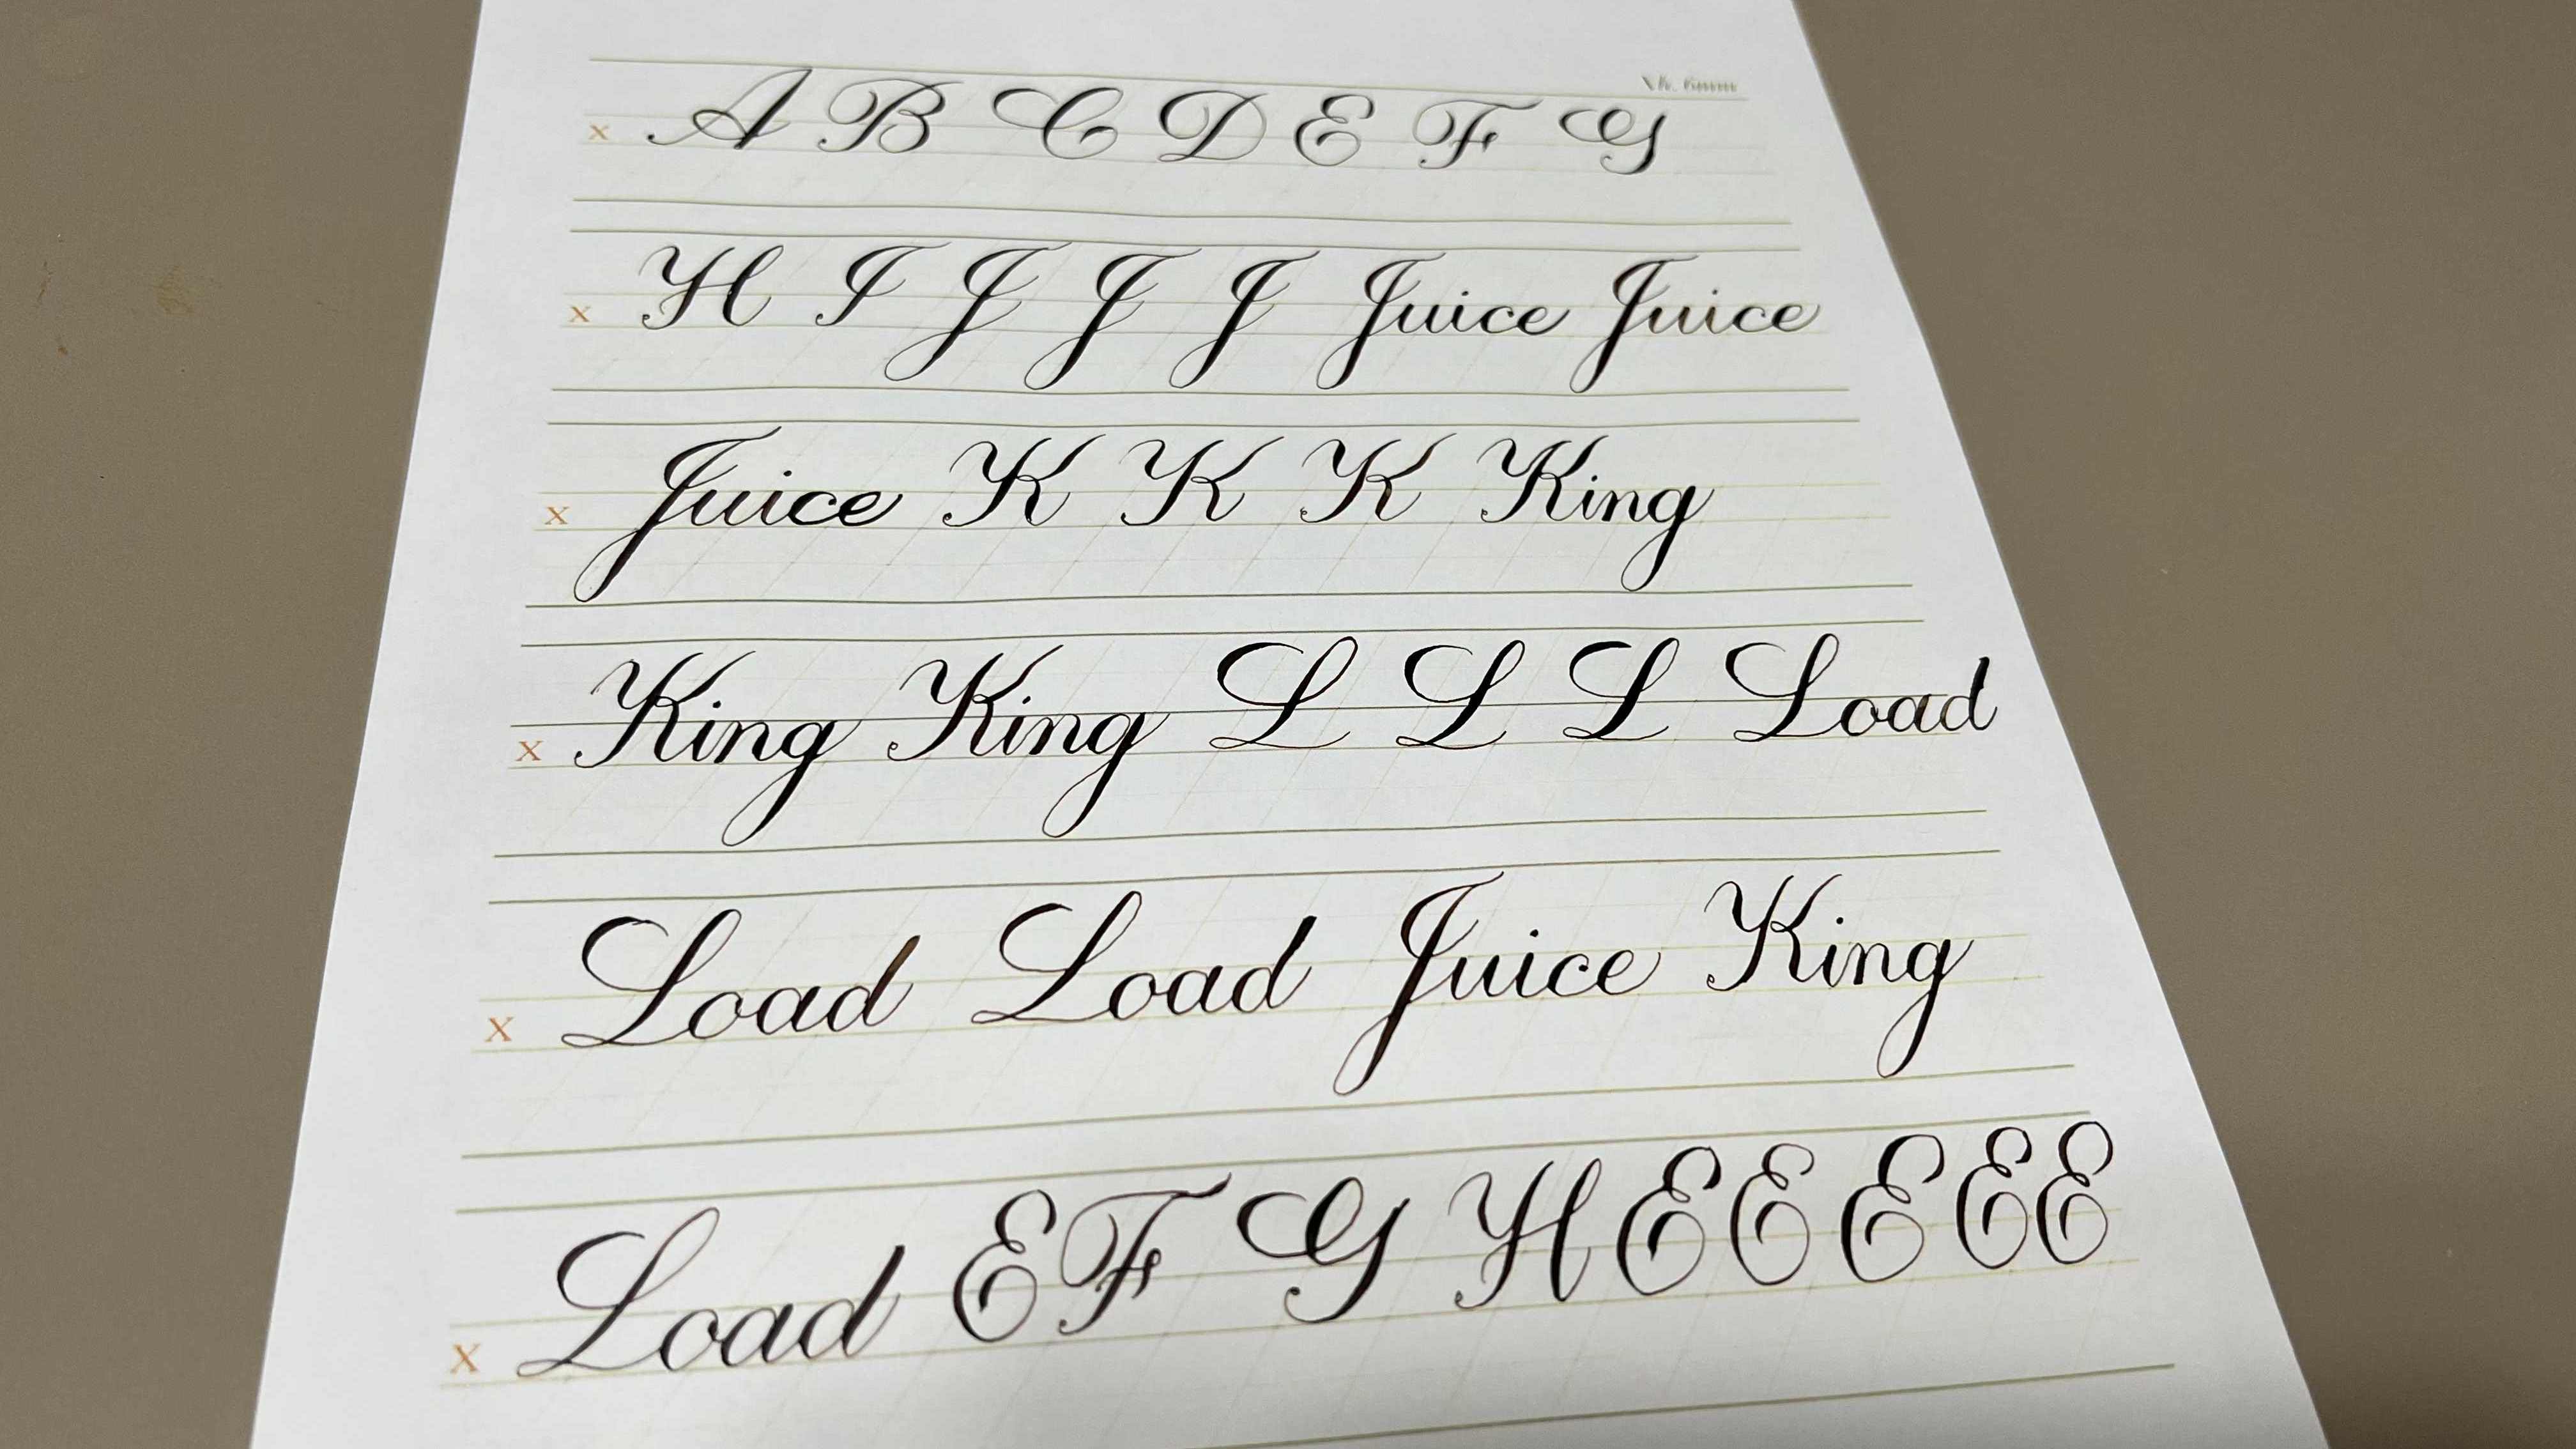 Xh. 6mm
x A B C D E F G
x H I J J J Juice Juice
x Juice K K K King
x King King L L L Load
x Load Load Juice King
x Load E F G H E E E E E